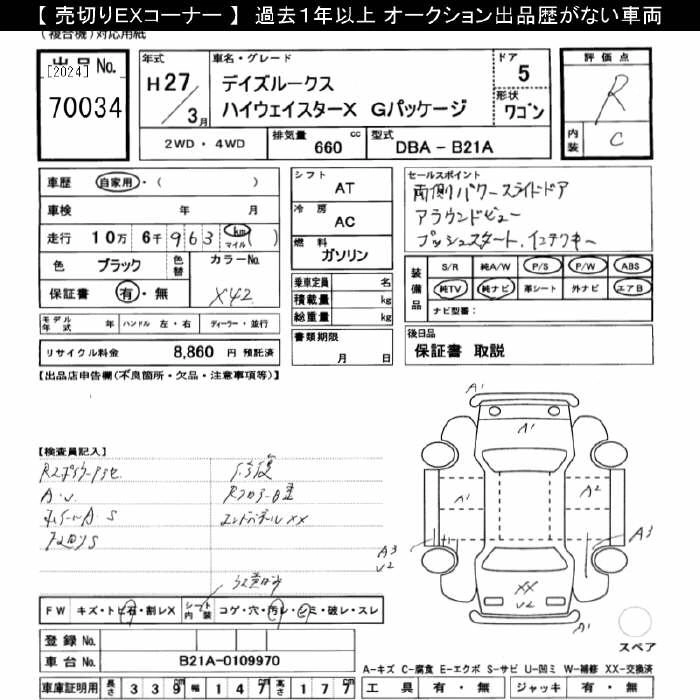 【 売切りEXコーナー 】 過去1年以上 オークション出品歴がない車両
(複合機)対応用紙
出品No.
[2024]
70034
年式
H27/3月
車名・グレード
デイズルークス
ハイウェイスターX Gパッケージ
ドア
5
形状
ワゴン
評価点
R
内装
C
2WD・4WD
排気量 660 cc
型式 DBA - B21A
車歴 自家用・( )
車検 年 月
走行 10万 6千 963 km マイル ( )
色 ブラック 色替 カラーNo.
保証書 有・無 X42
モデル年式 年 ハンドル 左・右 ディーラー・並行
リサイクル料金 8,860 円 預託済
シフト
AT
冷房
AC
燃料
ガソリン
乗車定員 名
積載量 kg
総重量 kg
書類期限
月 日
セールスポイント
両側パワースライドドア
アラウンドビュー
プッシュスタート、インテリキー
装備品
S/R 純A/W P/S P/W ABS
純TV 純ナビ 革シート 外ナビ エアB
ナビ型番:
後日品
保証書 取説
【出品店申告欄(不良箇所・欠品・注意事項等)】
【検査員記入】
A・U
ホイールA S
XX
A1
A1
A1
A2
A3
U2
A3
XX
U2
FW キズ・トビ石・割レX
シート内装 コゲ・穴・汚レ・シミ・破レ・スレ
登録No.
車台No. B21A-0109970
車庫証明用 長さ 339cm 幅 147cm 高さ 177cm
スペア
A-キズ C-腐食 E-エクボ S-サビ U-凹ミ W-補修 XX-交換済
工具 有・無 ジャッキ 有・無